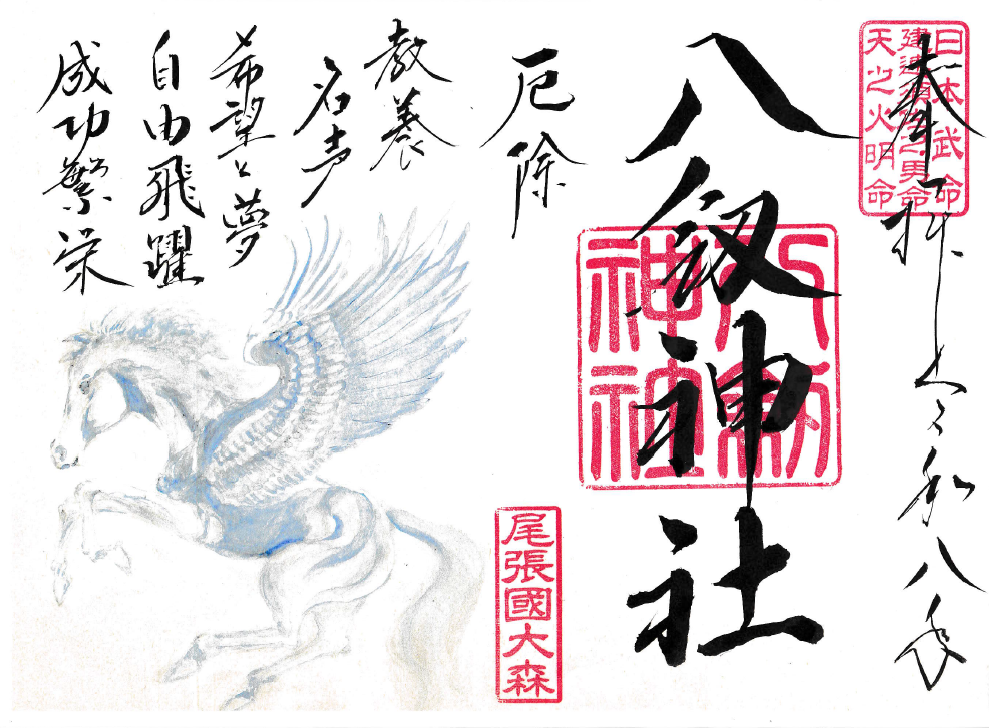 奉拝 令和八年
日本武命
建速須佐之男命
天之火明命
八剱神社
八剱神社
厄除
尾張國大森
教養
名声
希望と夢
自由飛躍
成功繁栄